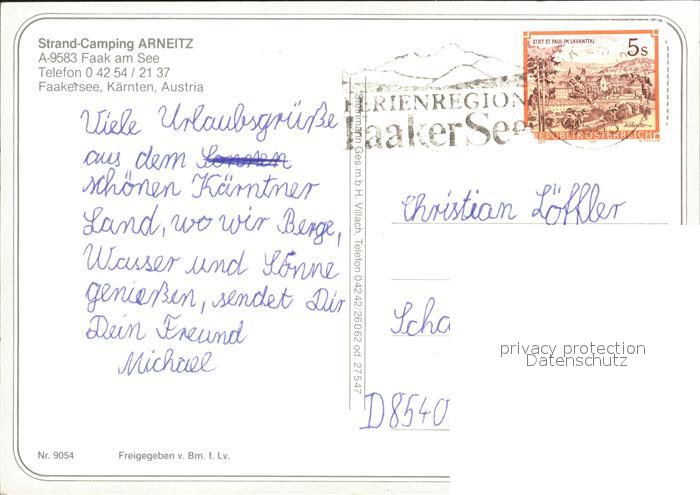 Strand-Camping ARNEITZ
A-9583 Faak am See
Telefon 0 42 54 / 21 37
Faakersee, Kärnten, Austria
Viele Urlaubsgrüße
aus dem Sonnen
schönen Kärntner
Land, wo wir Berge,
Wasser und Sonne
genießen, sendet Dir
Dein Freund
Michael
Nr. 9054 Freigegeben v. Bm. f. Lv.
Ges. m. b. H. Villach, Telefon 0 42 42/26 0 62 od. 27 5 47
FERIENREGION
Faaker See
STIFT ST. PAUL IM LAVANTTAL
5 S
REPUBLIK ÖSTERREICH
Christian Löffler
Scha
D8540
privacy protection
Datenschutz